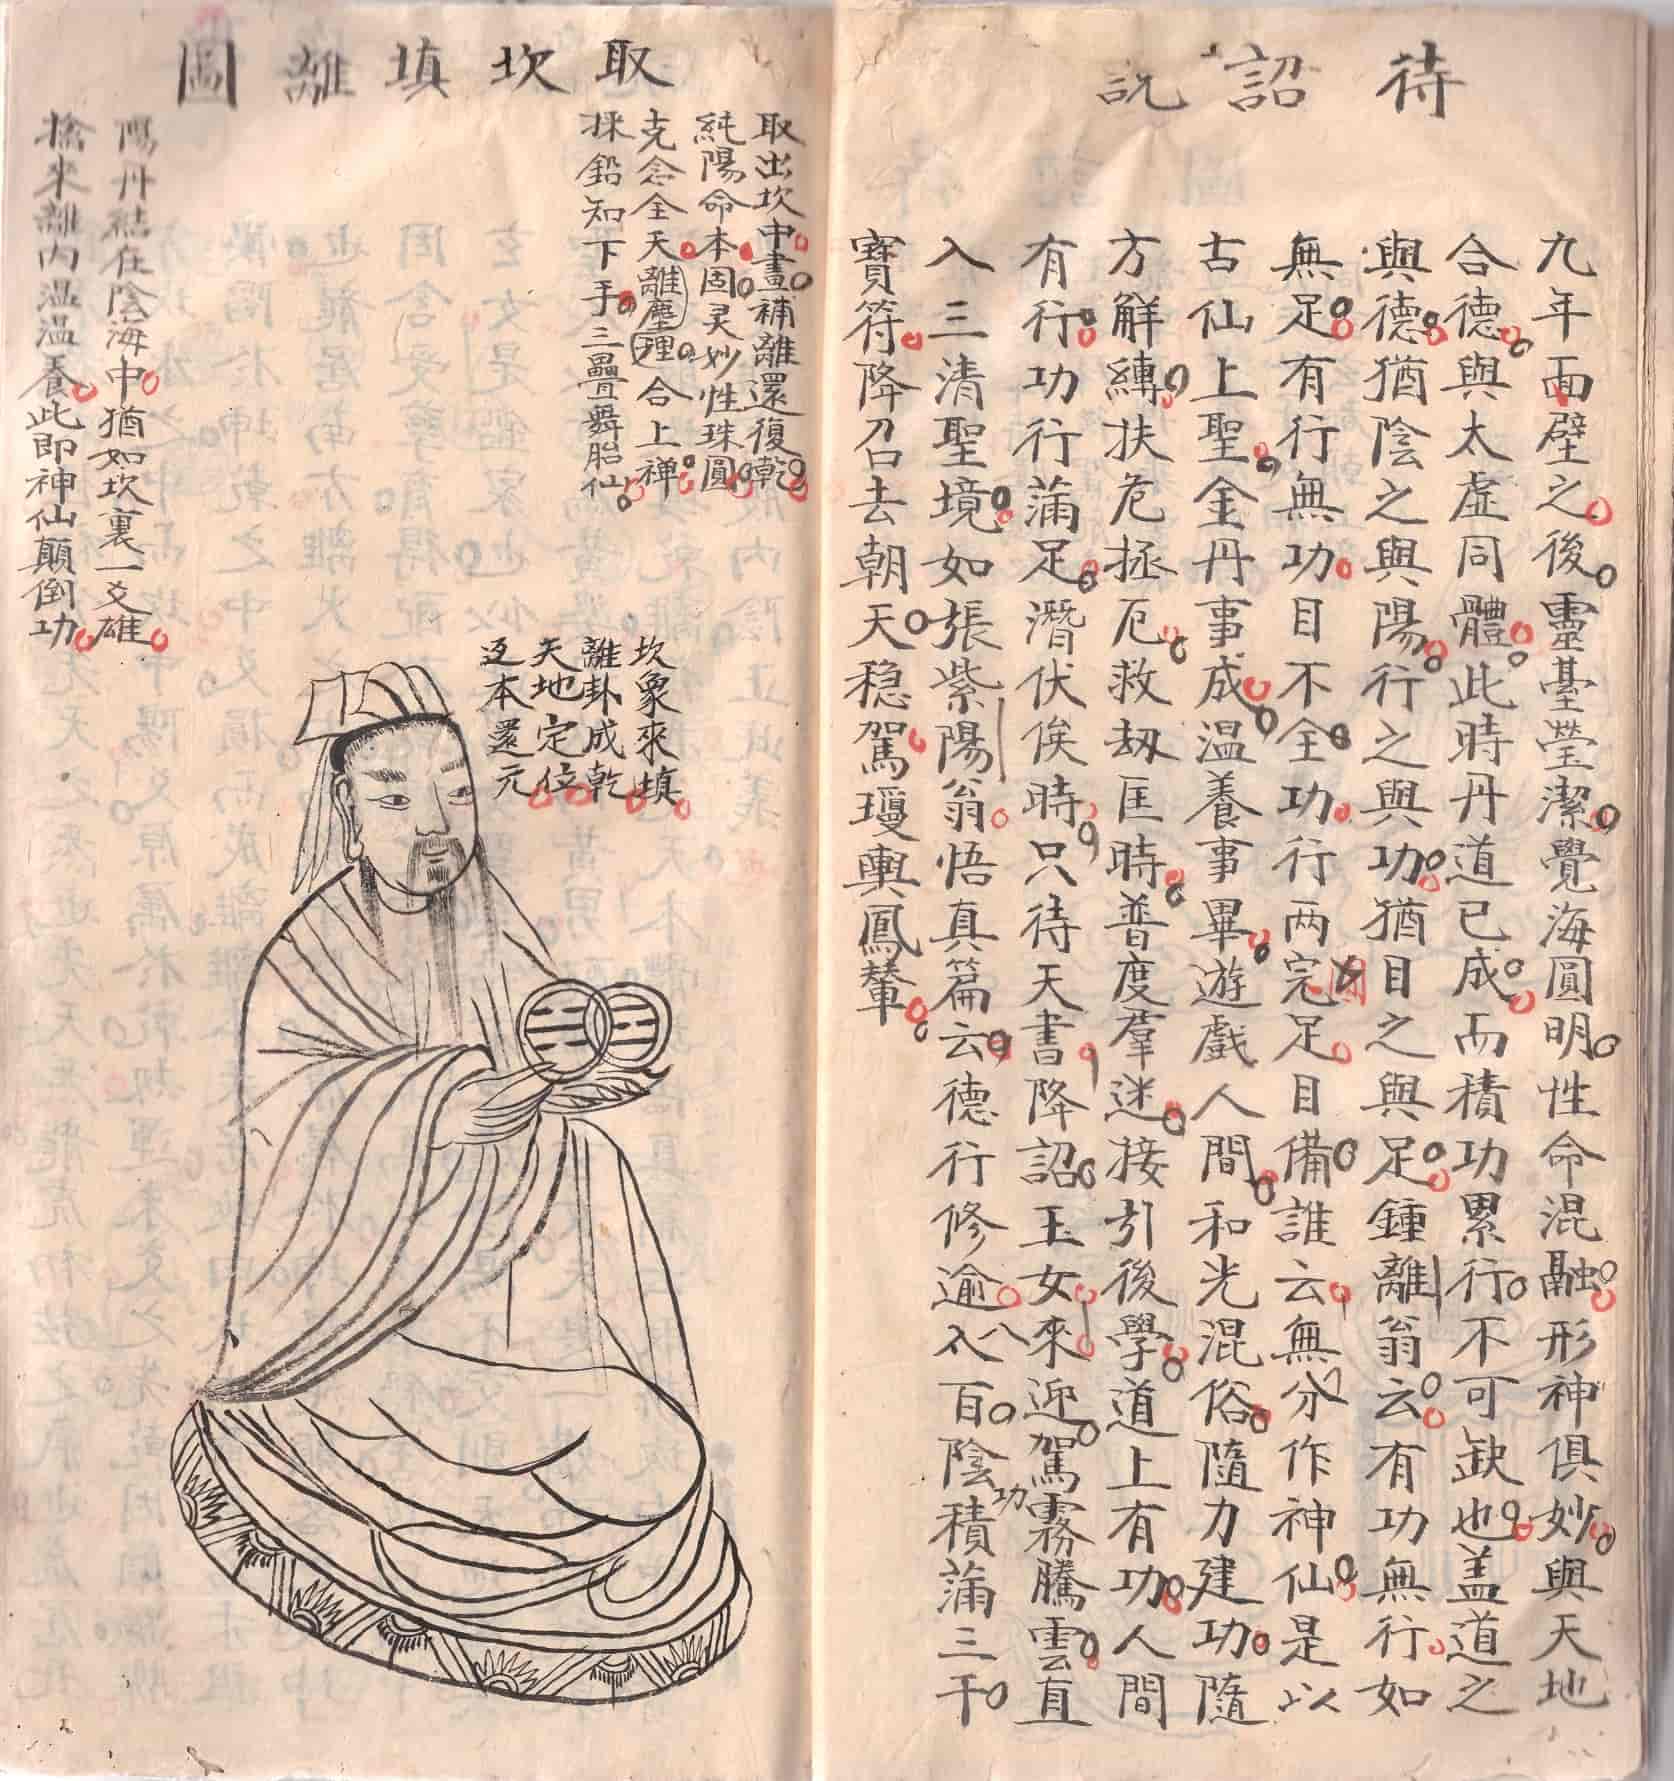 待詔說
九年面壁之後靈臺瑩潔覺海圓明性命混融形神俱妙與天地
合德與太虛同體此時丹道已成而積功累行不可缺也盖道之
與德猶陰之與陽行之與功猶目之與足鍾離翁云有功無行如
無足有行無功目不全功行两完足目備誰云無分作神仙是以
古仙上聖金丹事成温養事畢遊戲人間和光混俗隨力建功隨
方解縛扶危拯厄救刼匡時普度羣迷接引後學道上有功人間
有行功行蒲足潛伏俟時只待天書降詔玉女來迎駕霧騰雲直
入三清聖境如張紫陽翁悟真篇云德行修逾八百陰功積蒲三千
寶符降召去朝天穏駕瓊輿鳳輦
取坎填離圖
取出坎中畫補離還復乾
純陽命本固灵妙性珠圓
克念全天理離塵合上禅
採鉛知下手三疊舞胎仙
坎象來填
離卦成乾
天地定位
返本還元
陽丹結在陰海中猶如坎裏一爻雄
擒來離内温温養此即神仙顛倒功